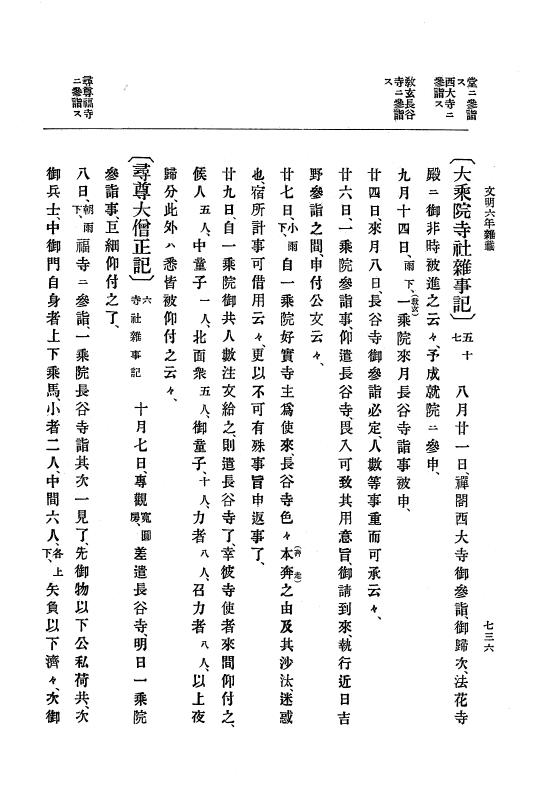 文明六年雜載
七三六
堂ニ參詣
ス
西大寺ニ
參詣ス
教玄長谷
寺ニ參詣
ス
尋尊福寺
ニ參詣ス
〔大乘院寺社雜事記〕 五十七 八月廿一日、禪閤西大寺御參詣、御歸次、法花寺
殿ニ御非時被進之云々、予成就院ニ參申、
九月十四日、雨下、一乘院(教玄)來月長谷寺詣事被申、
廿四日、來月八日、長谷寺御參詣必定、人數等事重而可承云々、
廿六日、一乘院參詣事、仰遣長谷寺、畏入可致其用意旨、御請到來、執行近日吉
野參詣之間、申付公文云々、
廿七日、小雨下、自一乘院好實寺主爲使來、長谷寺色々本奔(奔走)之由及其沙汰、迷惑
也、宿所計事可借用云々、更以不可有殊事旨申返事了、
廿九日、自一乘院御共人數注文給之、則遣長谷寺了、幸彼寺使者來間仰付之、
候人五人、中童子一人、北面衆五人、御童子、十人、力者八人、召力者八人、以上夜
歸分、此外ハ悉皆被仰付之云々、
〔尋尊大僧正記〕 六 寺社雜事記 十月七日、專觀寬圓房、差遣長谷寺、明日一乘院
參詣事、巨細仰付之了、
八日、朝雨下、福寺ニ參詣、一乘院長谷寺詣其次一見了、先御物以下公私荷共、次
御兵士、中御門自身者上下乘馬、小者二人、中間六人、各上下、矢負以下濟々、次御